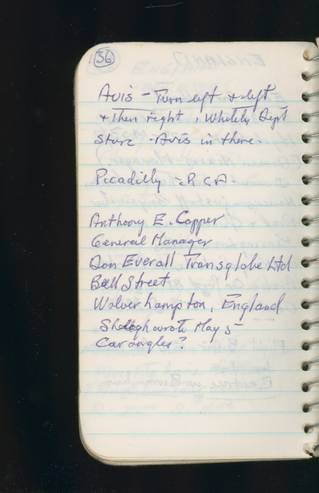 56
Avis - Turn left & left
& then right, Whitely Dept
Store - Avis in there.
Picadilly
Anthony E. Copper
General Manager
Don Everall Transglobe Ltd
Bell Street
Wolverhampton, England
May 5
Car angles?